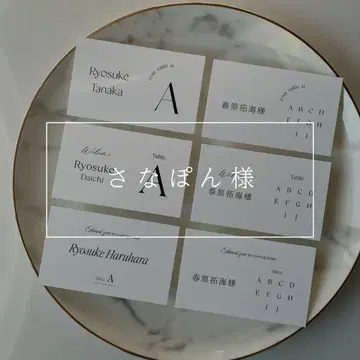 Ryosuke
Tanaka
your table is
A
your table is
春原拓海様
A B C D
E F G H
I J
さなぽん様
Welcome
Ryosuke
Daichi
Table
A
Welcome
春原拓海様
Table
A B C D
E F G H
I J
Ryosuke Haruhara
Table
A
春原拓海様
TABLE
A B C D
E F G H
I J